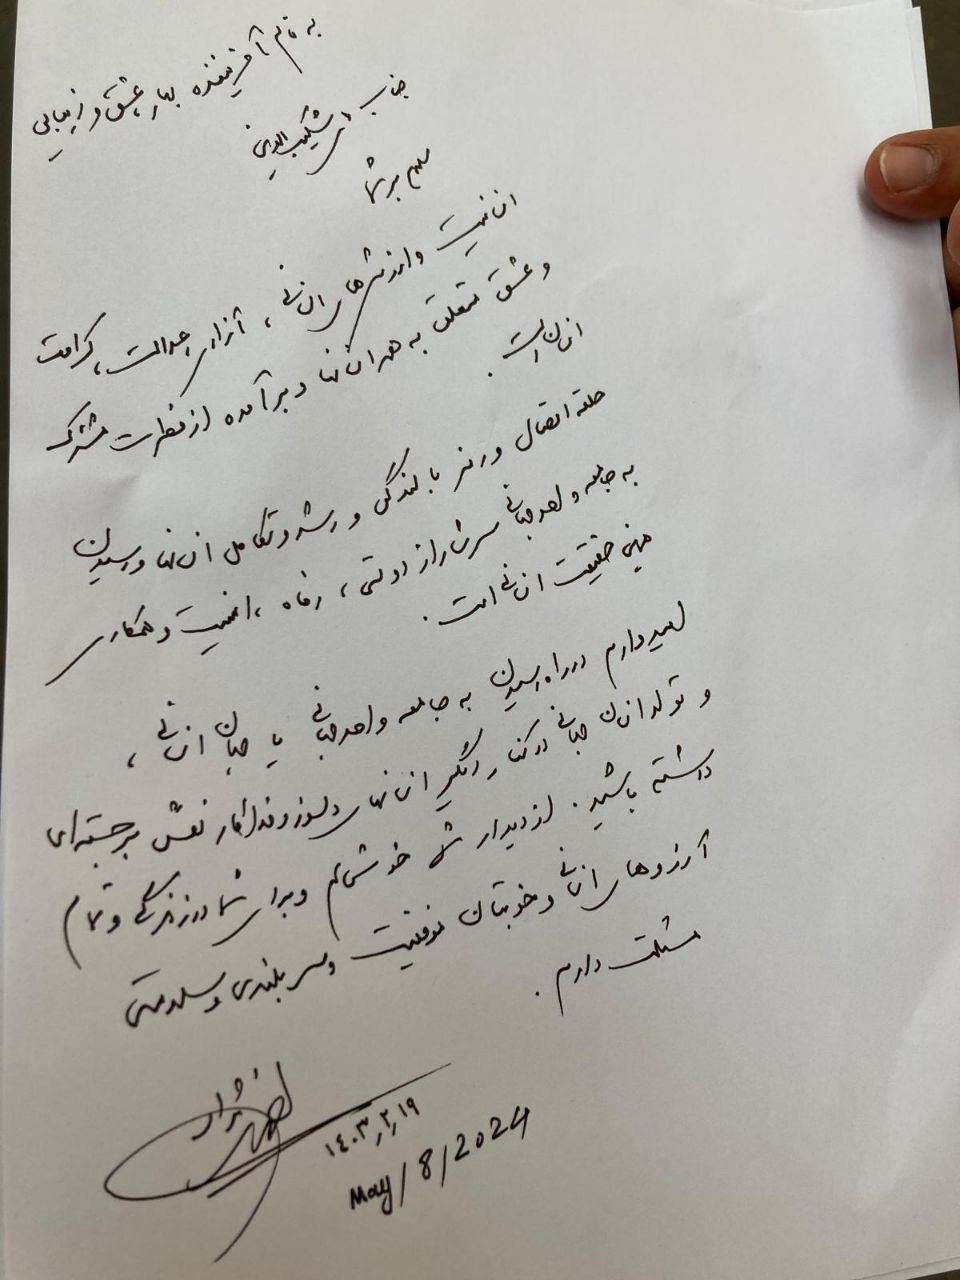 به نام آفریننده بهار، عشق و زیبایی
جناب آقای شکیب الدینی
سلام بر شما
انسانیت و ارزش‌های انسانی، آزادی، عدالت، کرامت
و عشق متعلق به همه انسانها و برآمده از فطرت مشترک
انسان است.
حلقه اتصال و رمز بالندگی و رشد و تکامل انسانها و رسیدن
به جامعه واحد جهانی سرشار از دوستی، رفاه، امنیت و همکاری
همین حقیقت انسانی است.
امیدوارم در راه رسیدن به جامعه واحد جهانی یا جهان انسانی،
و تولد انسان جهانی در کنار دیگر انسانهای دلسوز و فداکار نقش برجسته‌ای
داشته باشید. از دیدار شما خوشحالم و برای شما در زندگی و تمام
آرزوهای انسانی و خوبتان موفقیت و سربلندی و سلامتی
مسئلت دارم.
احمدی نژاد
۱۴۰۳٫۲٫۱۹
May/8/2024